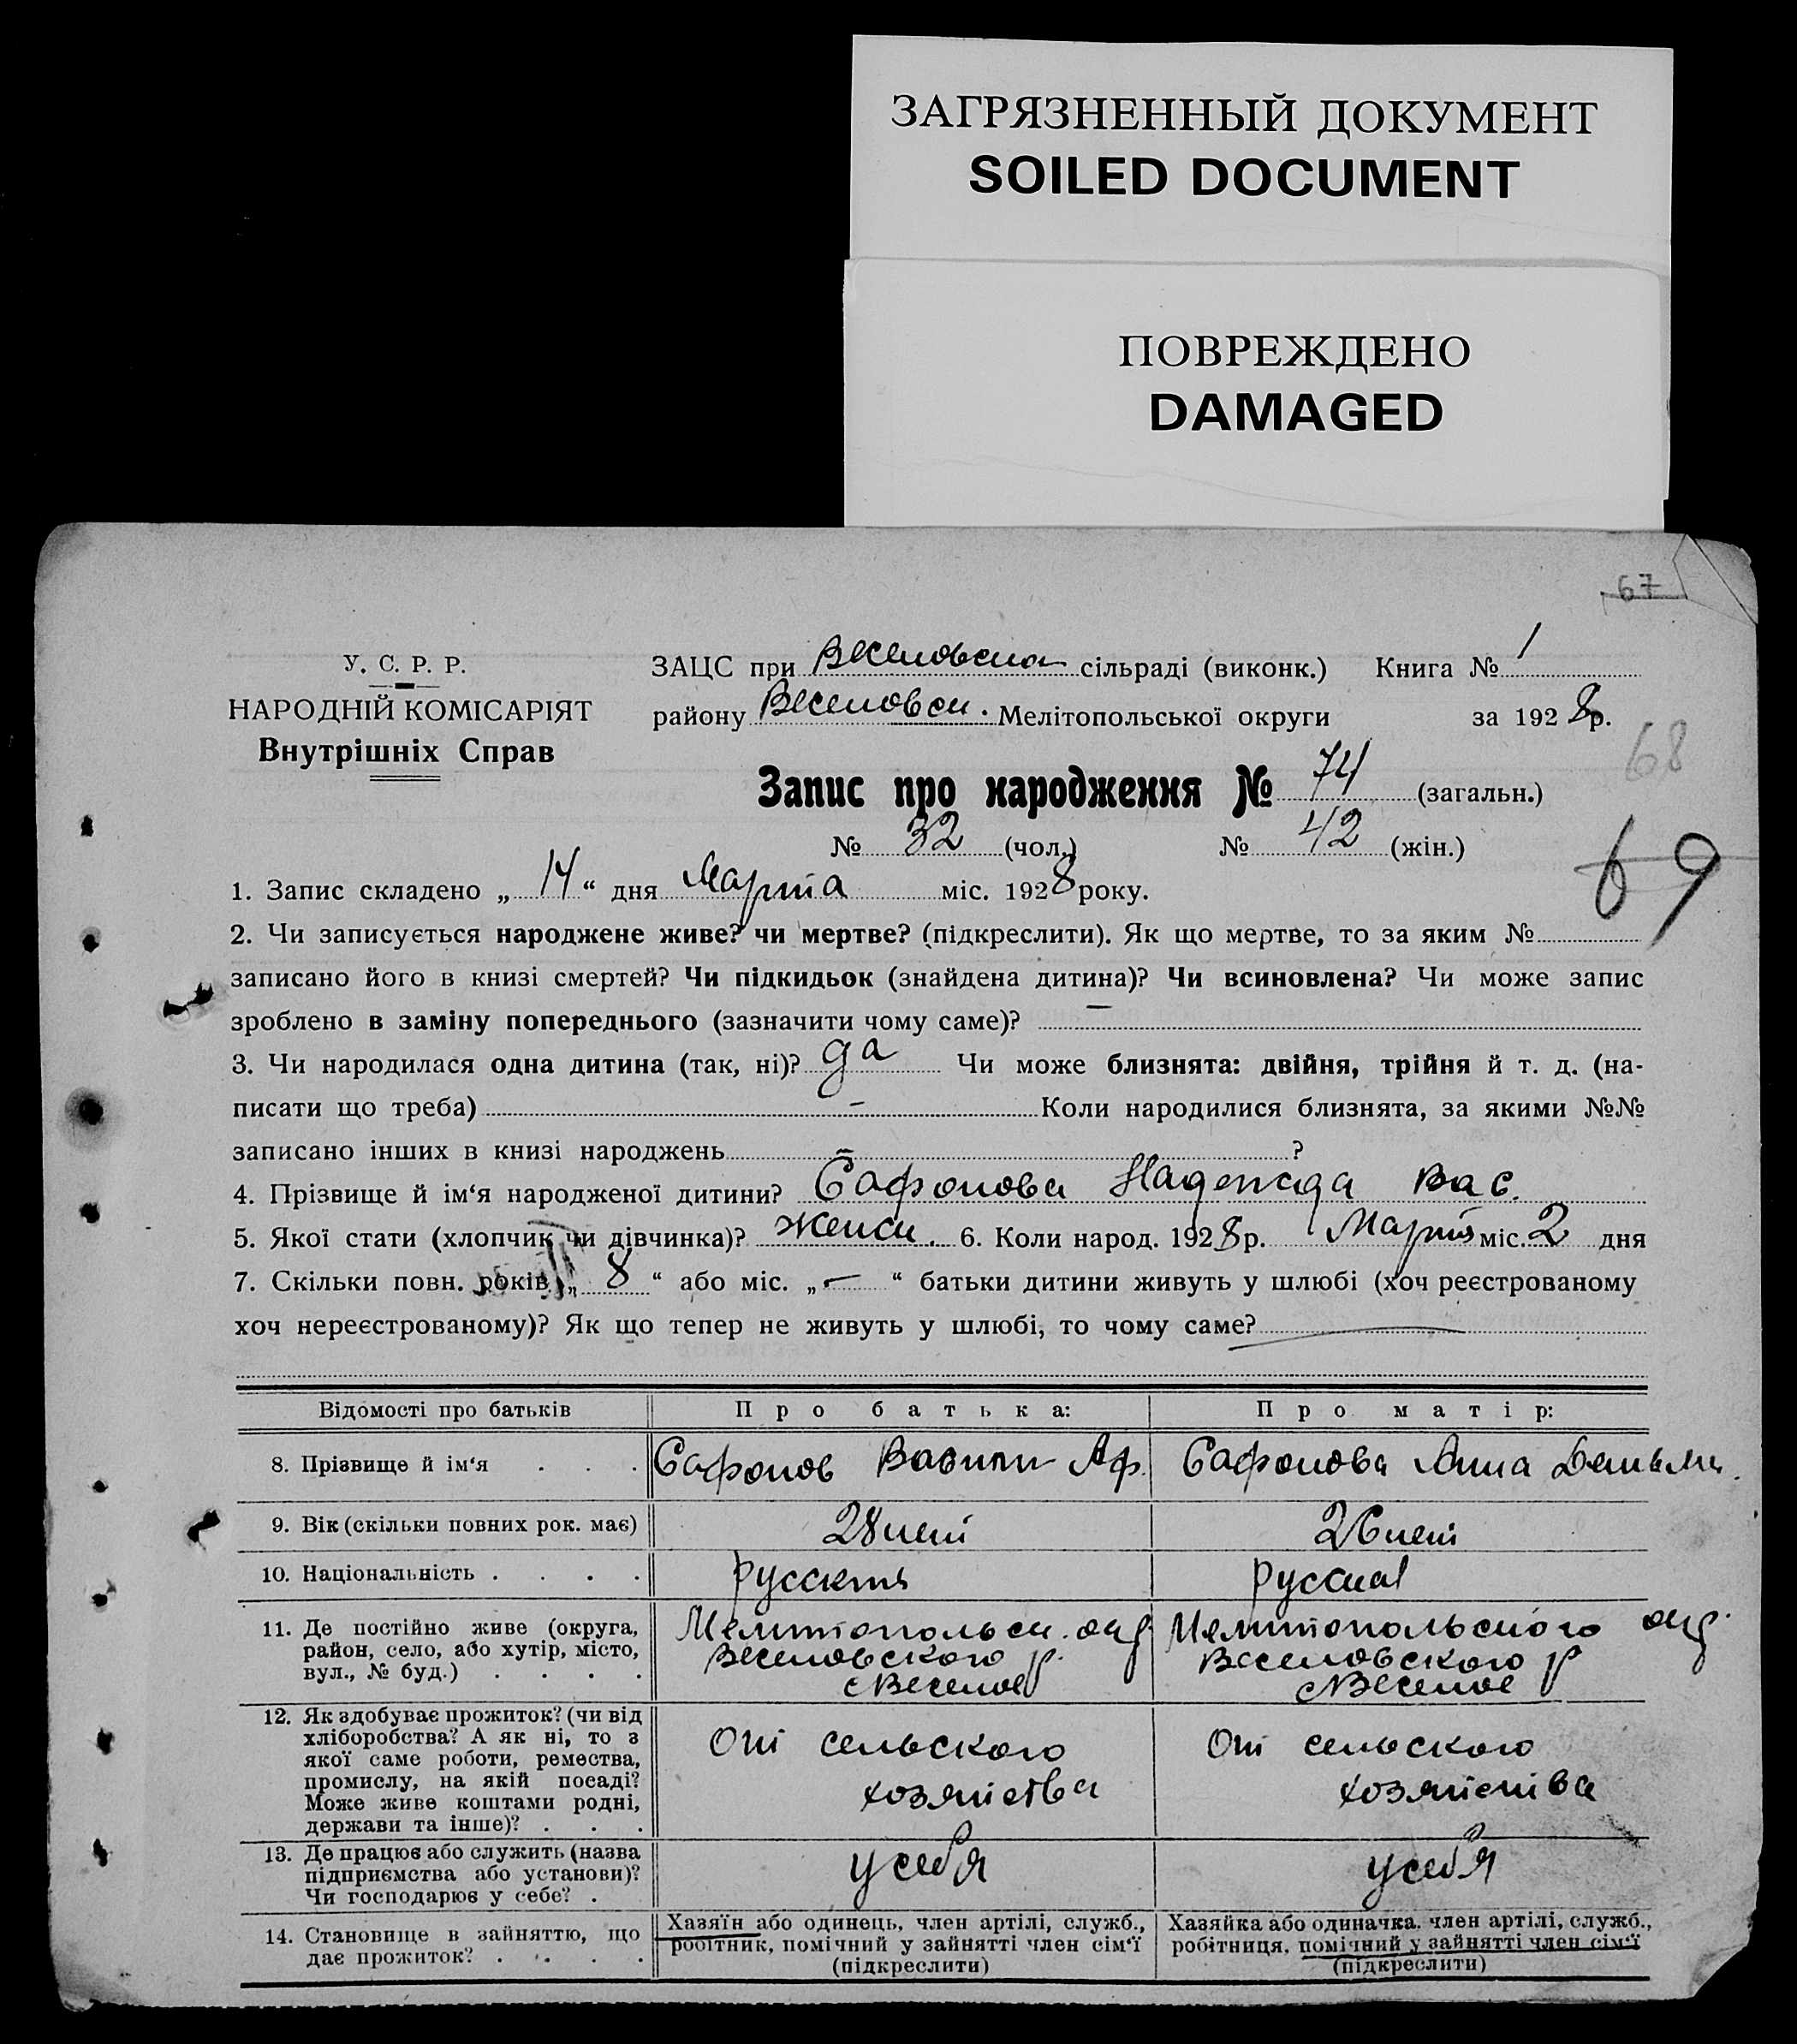 ЗАГРЯЗНЕННЫЙ ДОКУМЕНТ
SOILED DOCUMENT
ПОВРЕЖДЕНО
DAMAGED
67
У. С. Р. Р.
НАРОДНІЙ КОМІСАРІЯТ
Внутрішніх Справ
ЗАЦС при Веселовском сільраді (виконк.) Книга № 1
району Веселовск. Мелітопольської округи за 1928р.
68
Запис про народження № 74 (загальн.)
№ 32 (чол.) № 42 (жін.)
69
1. Запис складено „ 14 “ дня Марта міс. 1928 року.
2. Чи записується народжене живе? чи мертве? (підкреслити). Як що мертве, то за яким №
записано його в книзі смертей? Чи підкидьок (знайдена дитина)? Чи всиновлена? Чи може запис
зроблено в заміну попереднього (зазначити чому саме)? —
3. Чи народилася одна дитина (так, ні)? да Чи може близнята: двійня, трійня й т. д. (на-
писати що треба) – Коли народилися близнята, за якими №№
записано інших в книзі народжень – ?
4. Прізвище й ім‘я народженої дитини? Сафонова Надежда Вас.
5. Якої стати (хлопчик чи дівчинка)? женск. 6. Коли народ. 1928р. Марта міс. 2 дня
7. Скільки повн. років „ 8 “ або міс. „ — “ батьки дитини живуть у шлюбі (хоч реєстрованому
хоч нереєстрованому)? Як що тепер не живуть у шлюбі, то чому саме? —
Відомості про батьків Про батька: Про матір:
8. Прізвище й ім‘я . . . Сафонов Васили Аф. Сафонова Анна
9. Вік (скільки повних рок. має) 28 лет 26 лет
10. Національність . . . . русский русская
11. Де постійно живе (округа,
район, село, або хутір, місто,
вул., № буд.) . . . .
Мелитопольск. окр.
Веселовского р.
с Веселое
Мелитопольского окр.
Веселовского р
с Веселое
12. Як здобуває прожиток? (чи від
хліборобства? А як ні, то з
якої саме роботи, ремества,
промислу, на якій посаді?
Може живе коштами родні,
держави та інше)? . . .
От сельского
хозяиства
От сельского
хозяиства
13. Де працює або служить (назва
підприємства або установи)?
Чи господарює у себе? .
у себя
у себя
14. Становище в зайняттю, що
дає прожиток? . . . .
Хазяїн або одинець, член артілі, служб.,
робітник, помічний у зайнятті член сім‘ї
(підкреслити)
Хазяйка або одиначка, член артілі, служб.,
робітниця, помічний у зайнятті член сім‘ї
(підкреслити)